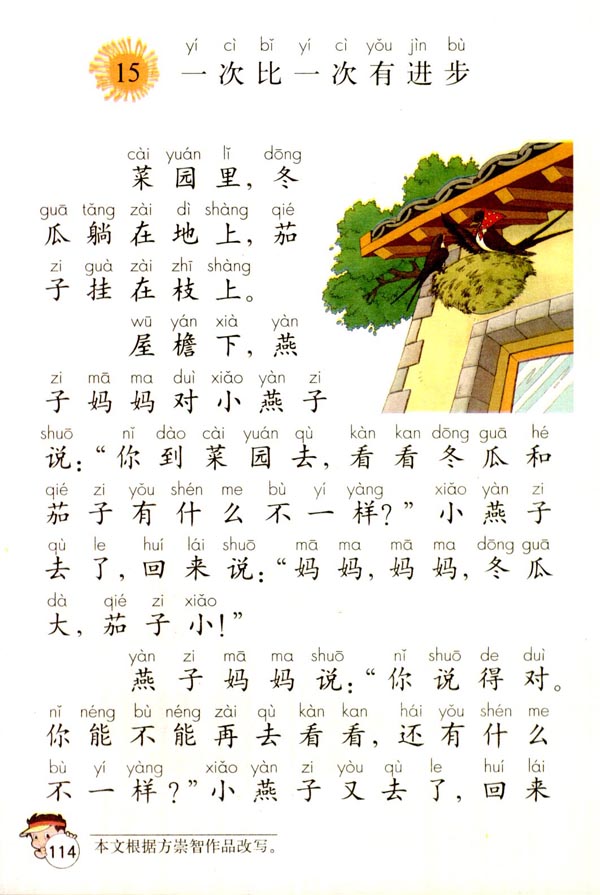 yí cì bǐ yí cì yǒu jìn bù
15 一次比一次有进步
cài yuán lǐ dōng
菜园里，冬
guā tǎng zài dì shàng qié
瓜躺在地上，茄
zi guà zài zhī shàng
子挂在枝上。
wū yán xià yàn
屋檐下，燕
zi mā ma duì xiǎo yàn zi
子妈妈对小燕子
shuō nǐ dào cài yuán qù kàn kan dōng guā hé
说：“你到菜园去，看看冬瓜和
qié zi yǒu shén me bù yí yàng xiǎo yàn zi
茄子有什么不一样？”小燕子
qù le huí lái shuō mā ma mā ma dōng guā
去了，回来说：“妈妈，妈妈，冬瓜
dà qié zi xiǎo
大，茄子小！”
yàn zi mā ma shuō nǐ shuō de duì
燕子妈妈说：“你说得对。
nǐ néng bù néng zài qù kàn kan hái yǒu shén me
你能不能再去看看，还有什么
bù yí yàng xiǎo yàn zi yòu qù le huí lái
不一样？”小燕子又去了，回来
114 本文根据方崇智作品改写。